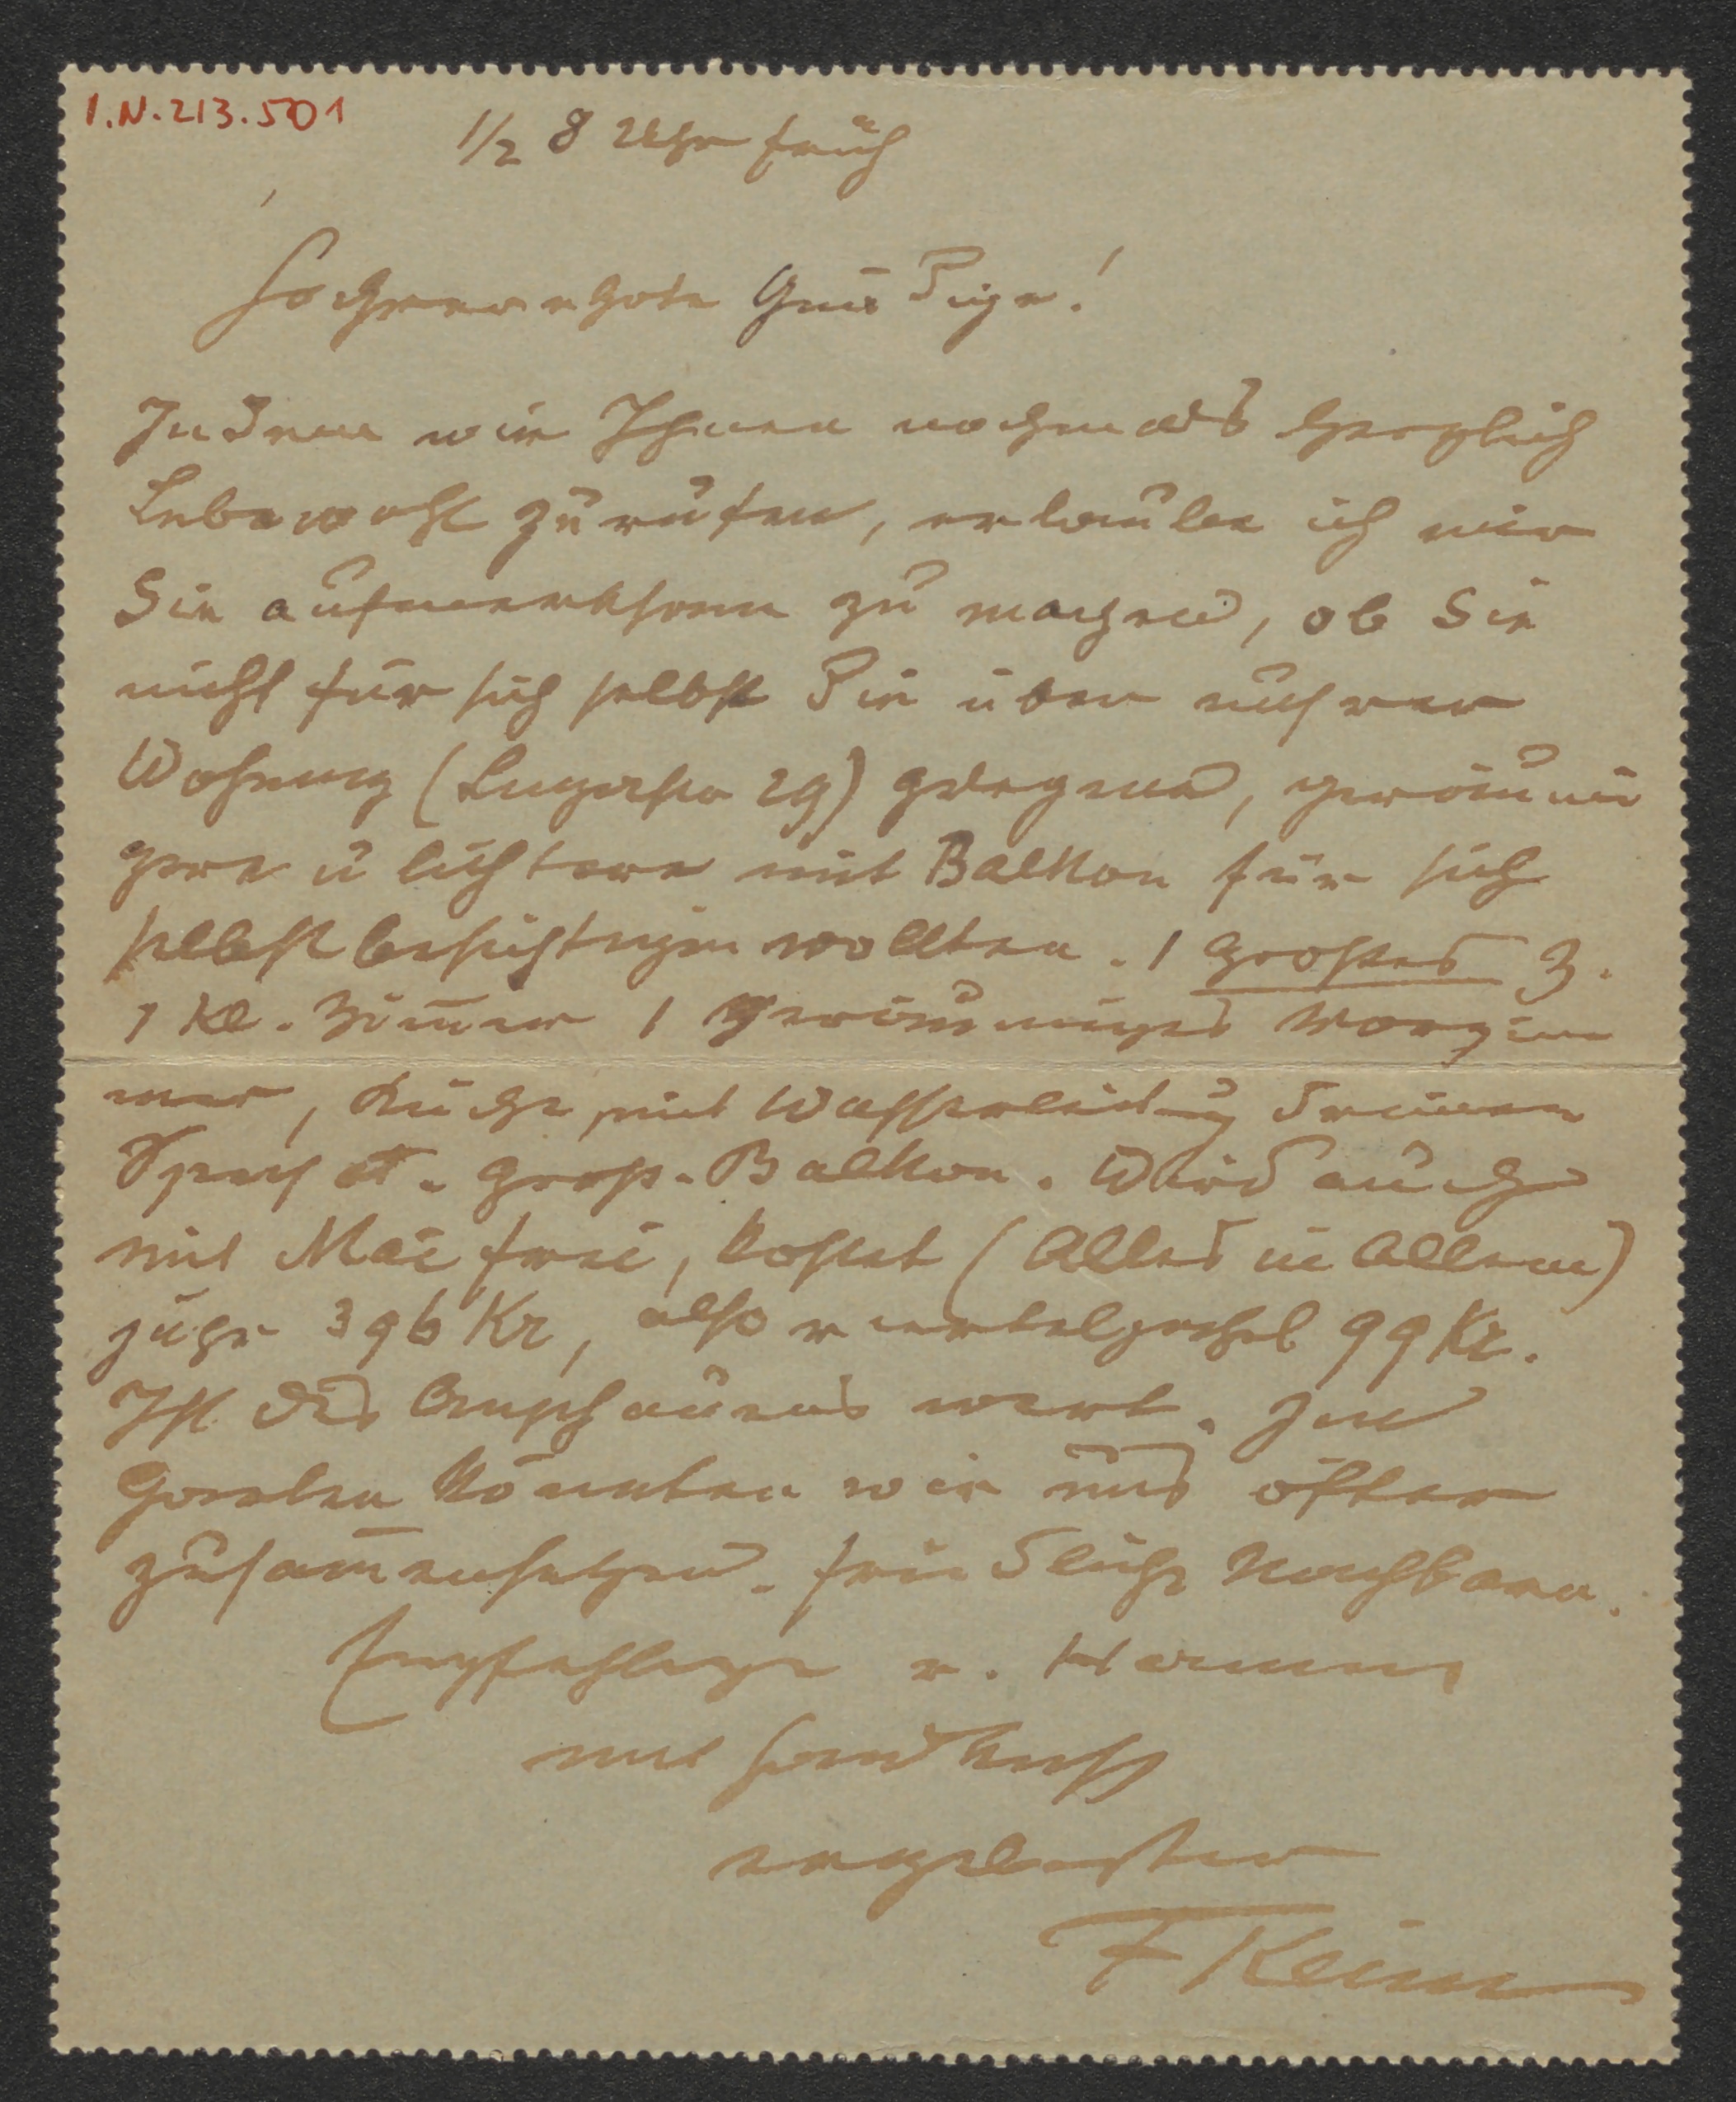 I.N. 213.501
1/2 8 Uhr früh
Hochverehrte Gnädige!
Indem wir Ihnen nochmals herzlich
Lebewohl zurufen, erlaube ich mir
Sie aufmerksam zu machen, ob Sie
nicht für sich selbst die über unsrer
Wohnung ( 29) gelegene, geräumi
gere u lichtere mit Balkon für sich
selbst besichtigen wollten. 1 großes Z.
1 kl. Zimmer 1 geräumiges Vorzim
mer, Küche, mit Wasserleitung drinnen
Speis groß. Balkon. Wird auch
mit Mai frei, kostet (Alles in Allem)
jähr 396 Kr, also vierteljährl 99 Kr.
Ist des Anschauens wert. Im
Garten könnten wir uns öfter
zusammensetzen. Freundliche Nachbarn.
Empfehlunge v.
mit Handkuss
ergebenster
F Keim